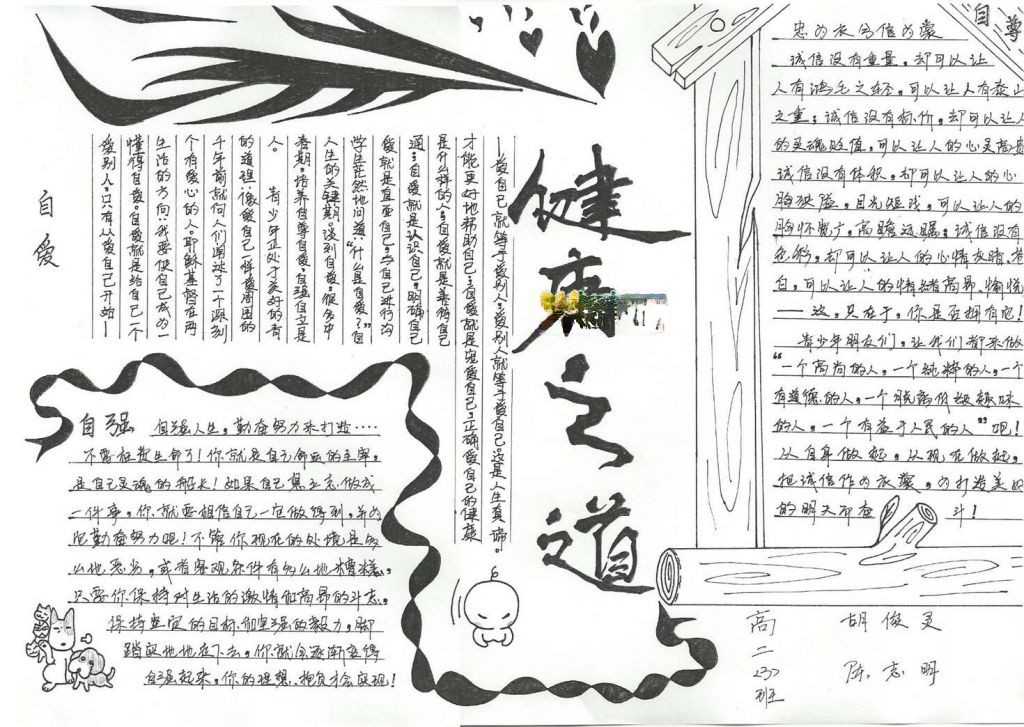 健康之道
自爱
——爱自己就等于爱别人,爱别人就等于爱自己,这是人生真谛。
才能更好地帮助自己;自爱就是宽爱自己,正确爱自己的健康
是什么样的人;自爱就是善待自己
通;自爱就是认识自己,明确自己
爱就是直面自己,与自己进行沟
学生茫然地问道:“什么是自爱?”自
人生的关键期。谈到自爱,很多中
春期,培养自尊自爱,自强自立是
人。 青少年正处于美好的青
的道理:像爱自己一样爱周围的
千年前就向人们阐述了一个深刻
个有爱心的人。耶稣基督在两
生活的方向:我要使自己成为一
懂得自爱。自爱就是给自己一个
爱别人,只有从爱自己开始——
自强 自强人生,勤奋努力来打造····
不要枉费生命了!你就是自己命运的主宰,
是自己灵魂的船长!如果自己想立志做成
一件事,你就要相信自己一定做得到,并为
此勤奋努力吧!不管你现在的处境是多
么地恶劣,或者客观条件有多么地糟糕,
只要你保持对生活的激情和高昂的斗志,
保持坚定的目标和坚强的毅力,脚
踏实地地走下去,你就会逐渐变得
自强起来,你的理想、抱负才会实现!
自尊
忠为衣兮信为裳
诚信没有重量,却可以让
人有鸿毛之轻,可以让人有泰山
之重;诚信没有标价,却可以让人
的灵魂贬值,可以让人的心灵高贵
诚信没有体积,却可以让人的心
胸狭隘,目光短浅,可以让人的
胸怀宽广,高瞻远瞩;诚信没有
色彩,却可以让人的心情灰暗,苍
白,可以让人的情绪高昂、愉悦
——这,只在于,你是否拥有它!
青少年朋友们,让我们都来做
“一个高尚的人,一个纯粹的人,一个
有道德的人,一个脱离低级趣味
的人,一个有益于人民的人”吧!
从自身做起,从现在做起,
把诚信作为衣裳,为打造美好
的明天而奋 斗!
高二(3)班
胡俊灵
陈志明